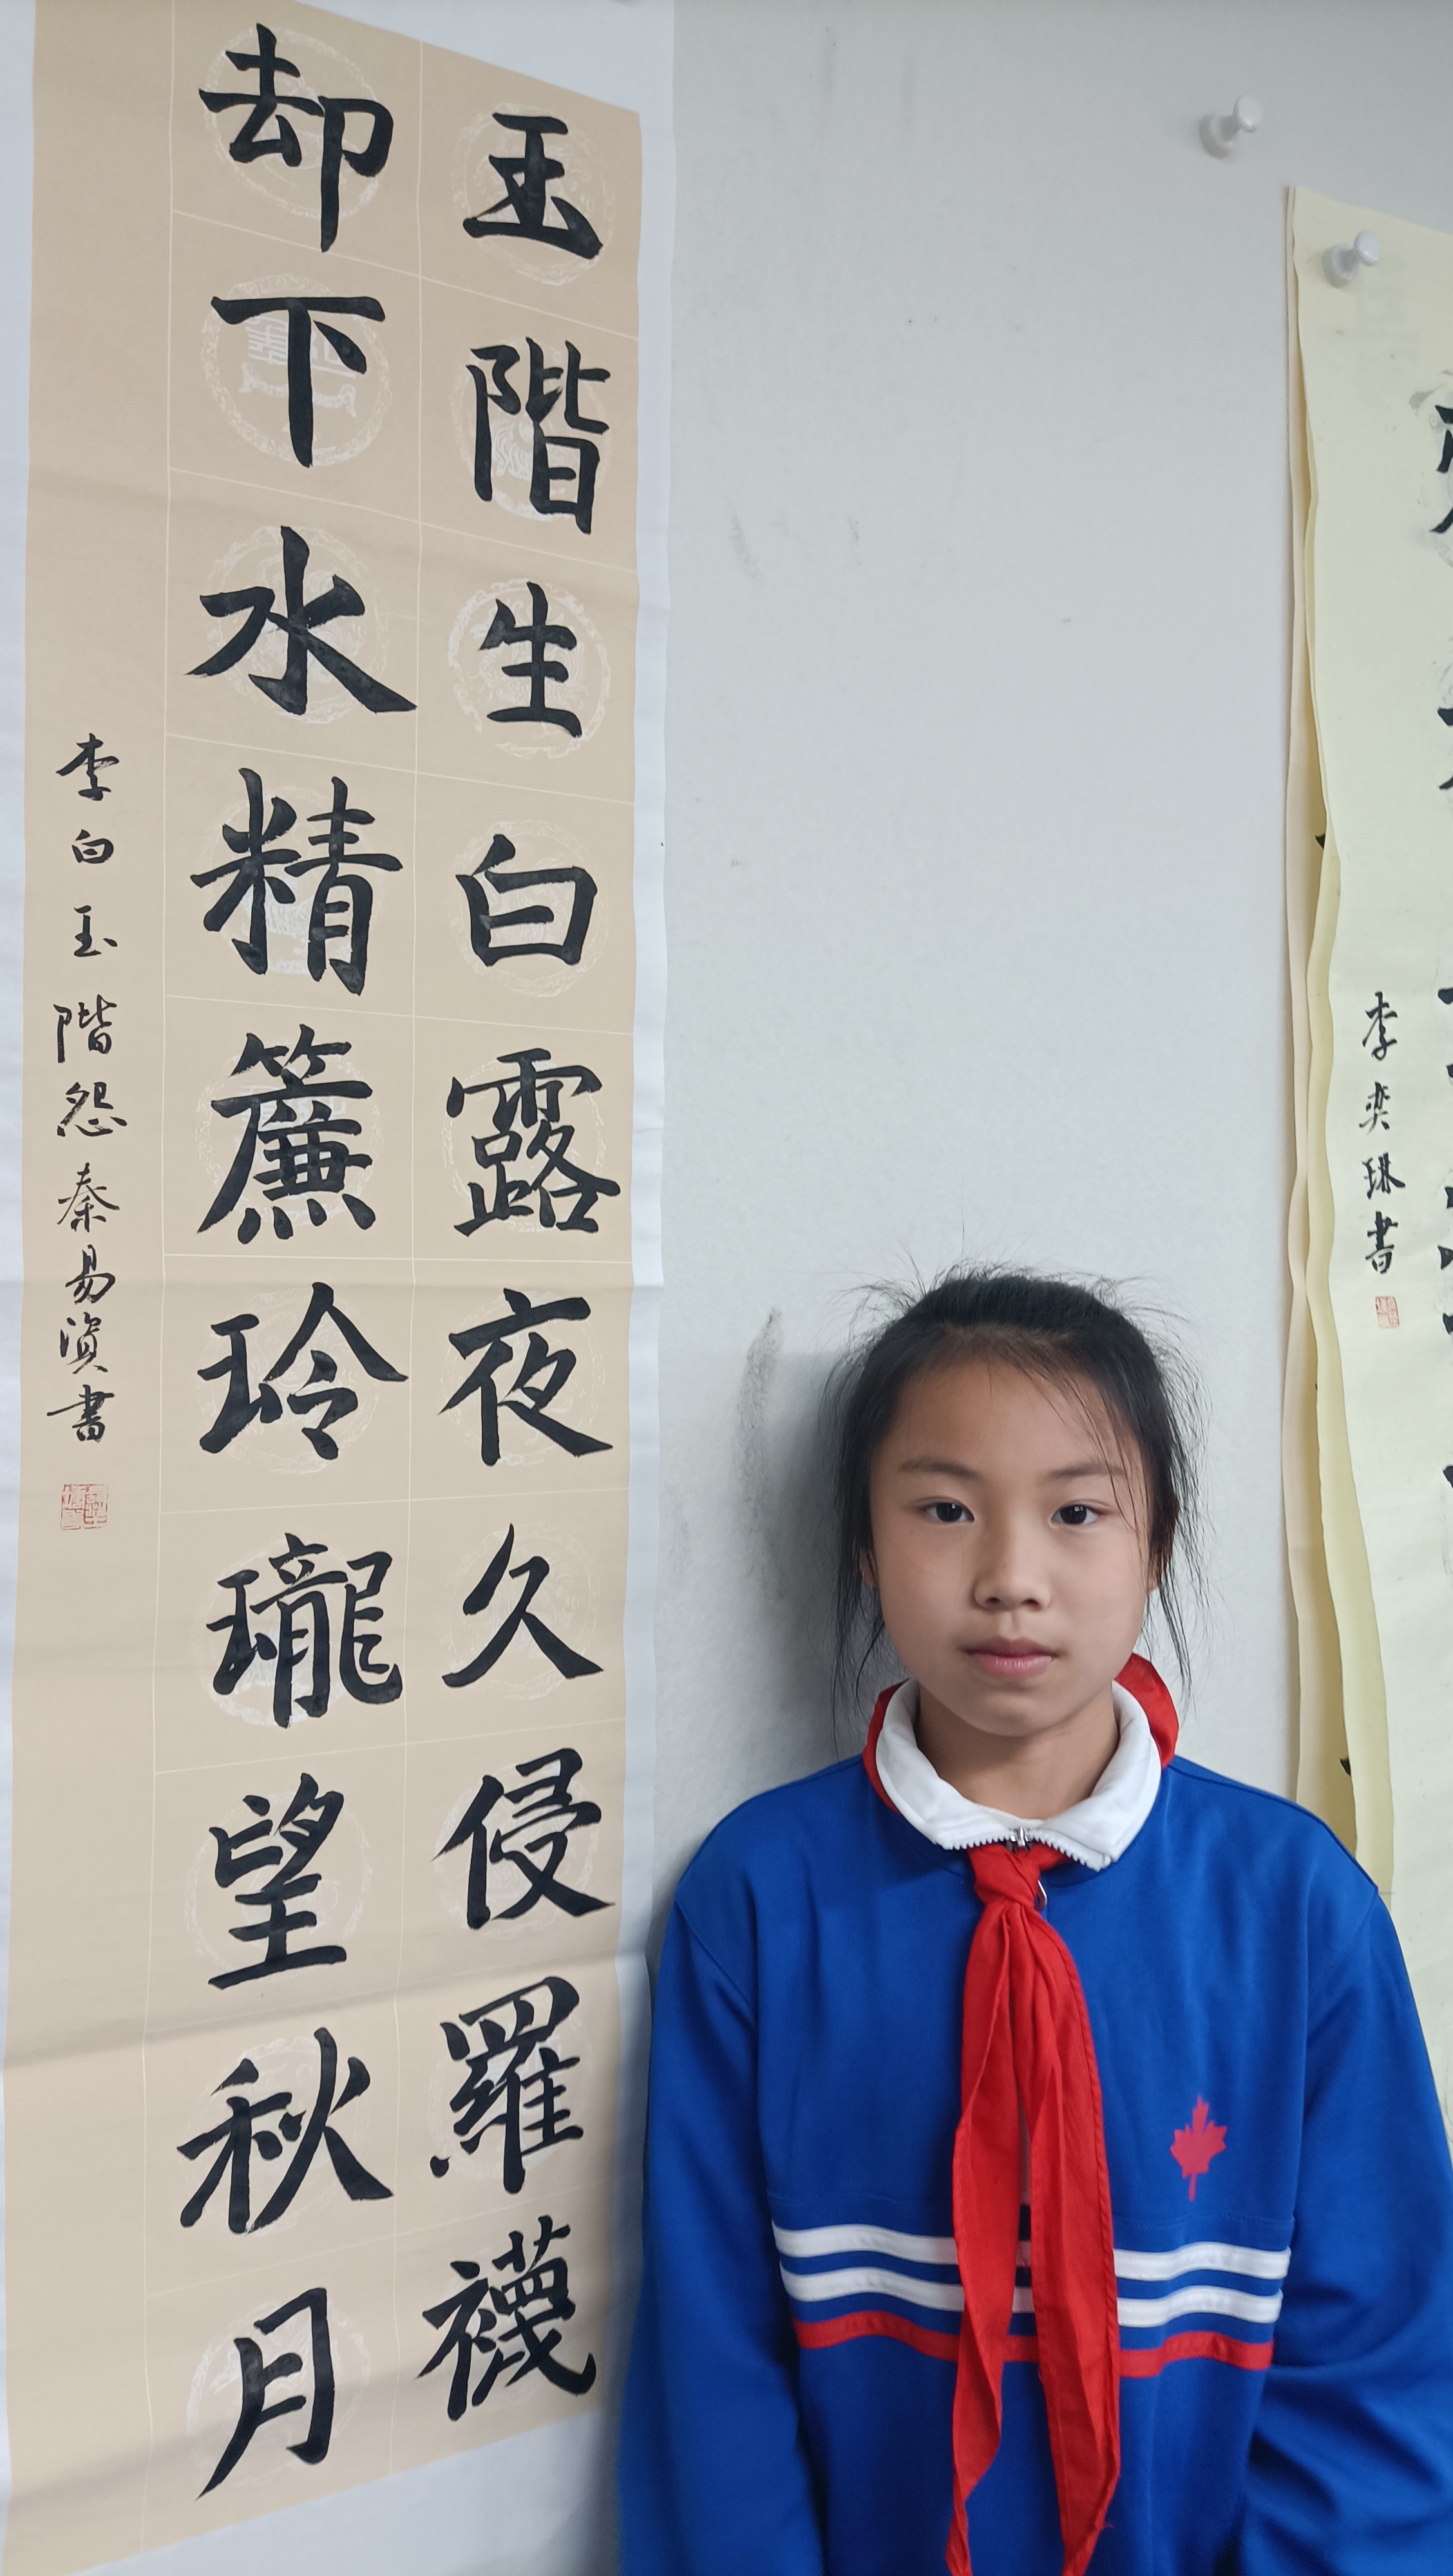 玉階生白露夜久侵羅襪
却下水精簾玲瓏望秋月
李白玉階怨秦易濱書
李奕琳書